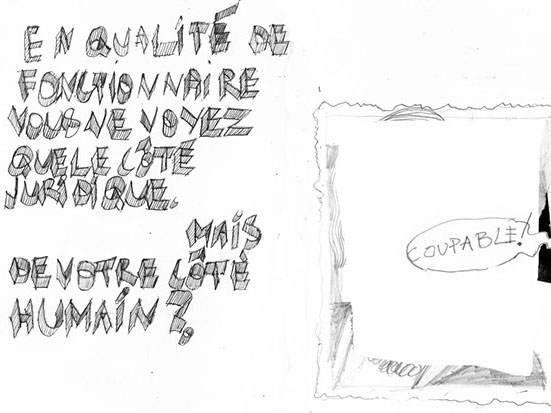 EN QUALITÉ DE
FONCTIONNAIRE
VOUS NE VOYEZ
QUE LE CÔTÉ
JURIDIQUE.
MAIS
DE VOTRE CÔTÉ
HUMAIN ?
COUPABLE!